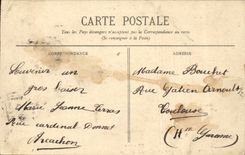 CARTE POSTALE
Tous les Pays étrangers n'acceptent pas la Correspondance au recto
(Se renseigner à la Poste)
CORRESPONDANCE
ADRESSE
Souvenir un
gros baiser
Marie Jeanne
Rue cardinal Donnet
Arcachon
Madame Bouchet
Rue Gatien Arnoult
Toulouse
(Hte Garonne)